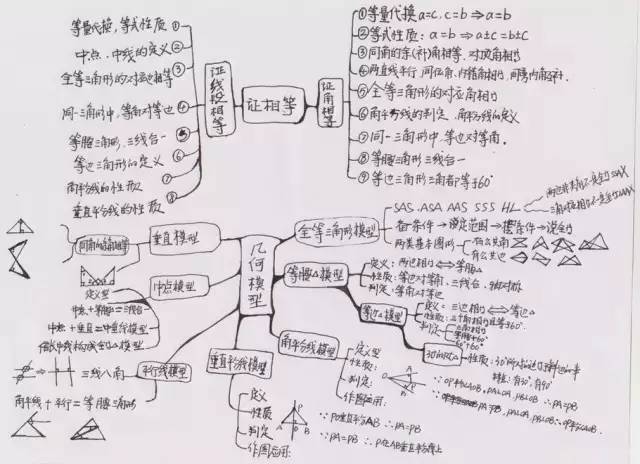 证相等
证线段相等
等量代换,等式性质 ①
中点.中线的定义 ②
全等三角形的对应边相等 ③
同一三角形中,等角对等边 ④
等腰三角形,三线合一 ⑤
等边三角形的定义 ⑥
角平分线的性质 ⑦
垂直平分线的性质 ⑧
证角相等
①等量代换 a=c, c=b ⇒ a=b
②等式性质: a=b ⇒ a±c=b±c
③同角的余(补)角相等、对顶角相等
④两直线平行,同位角、内错角相等,同旁内角互补.
⑤全等三角形的对应角相等
⑥角平分线的判定、角平分线的定义
⑦同一三角形中,等边对等角.
⑧等腰三角形三线合一
⑨等边三角形三角都等于60°
几何模型
垂直模型
同角的余角相等
中点模型
定义型
中点+等腰△=三线合一
中点+垂直=中垂线模型
倍长中线构成全等△模型
平行线模型
三线八角
角平线+平行=等腰三角形
垂直平分线模型
定义
性质
判定
作图应用:
∵PO垂直平分AB ∴PA=PB
∵PA=PB ∴P在AB垂直平分线上
全等三角形模型
SAS.ASA AAS SSS HL
备条件→设定范围→摆条件→说全等
两类基本图形
有公共角
有公共边
等腰△模型
定义:两边相等⇔等腰△
性质:等边对等角、三线合一、轴对称
判定:等角对等边
等边△模型
定义:三边相等⇔等边△
性质:三个角相等且等于60°
判定
三角相等
等腰+60°
30°的Rt△
性质:30°所对的边是斜边的一半
角平分线模型
定义型
性质:
判定:
作图应用: